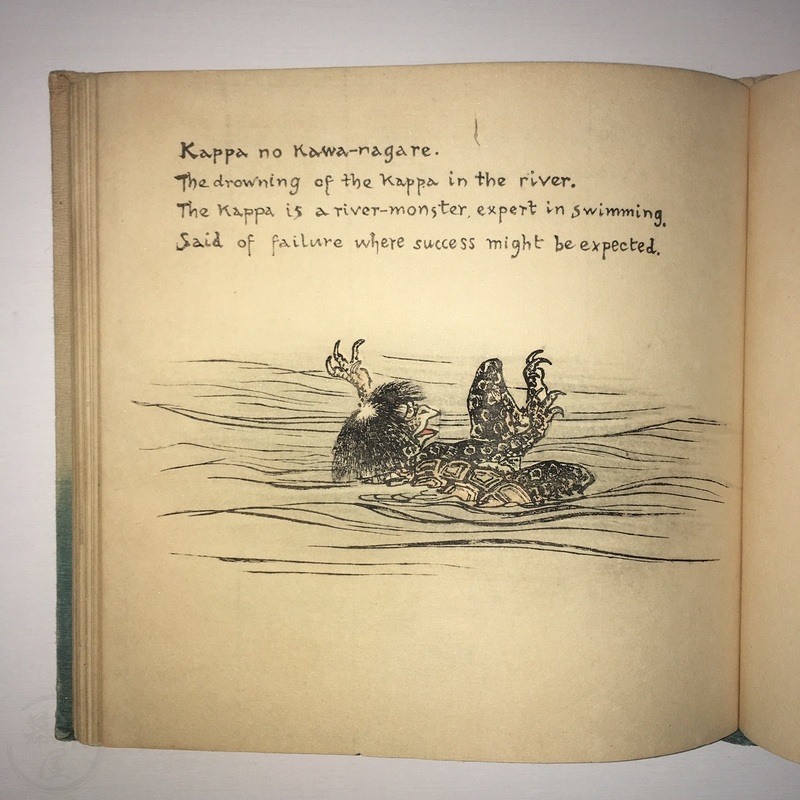 Kappa no Kawa-nagare.
The drowning of the Kappa in the river.
The Kappa is a river-monster, expert in swimming.
Said of failure where success might be expected.